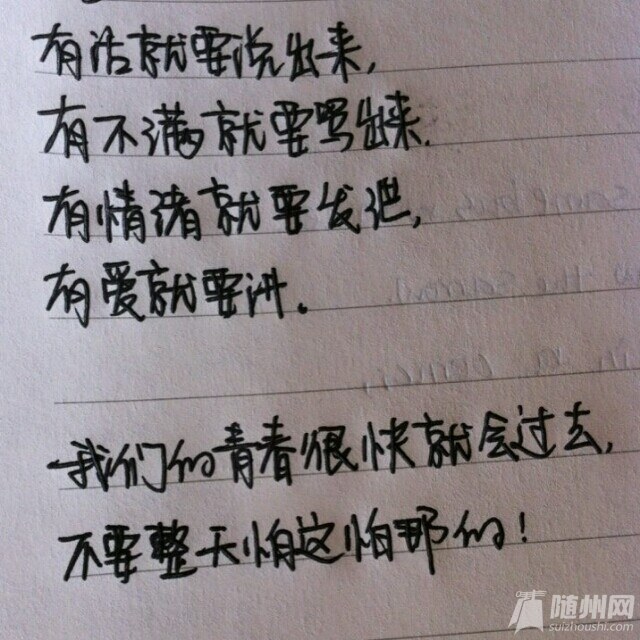 有话就要说出来,
有不满就要骂出来.
有情绪就要发泄,
有爱就要讲。
我们的青春很快就会过去,
不要整天怕这怕那的!
随州网
suizhoushi.com